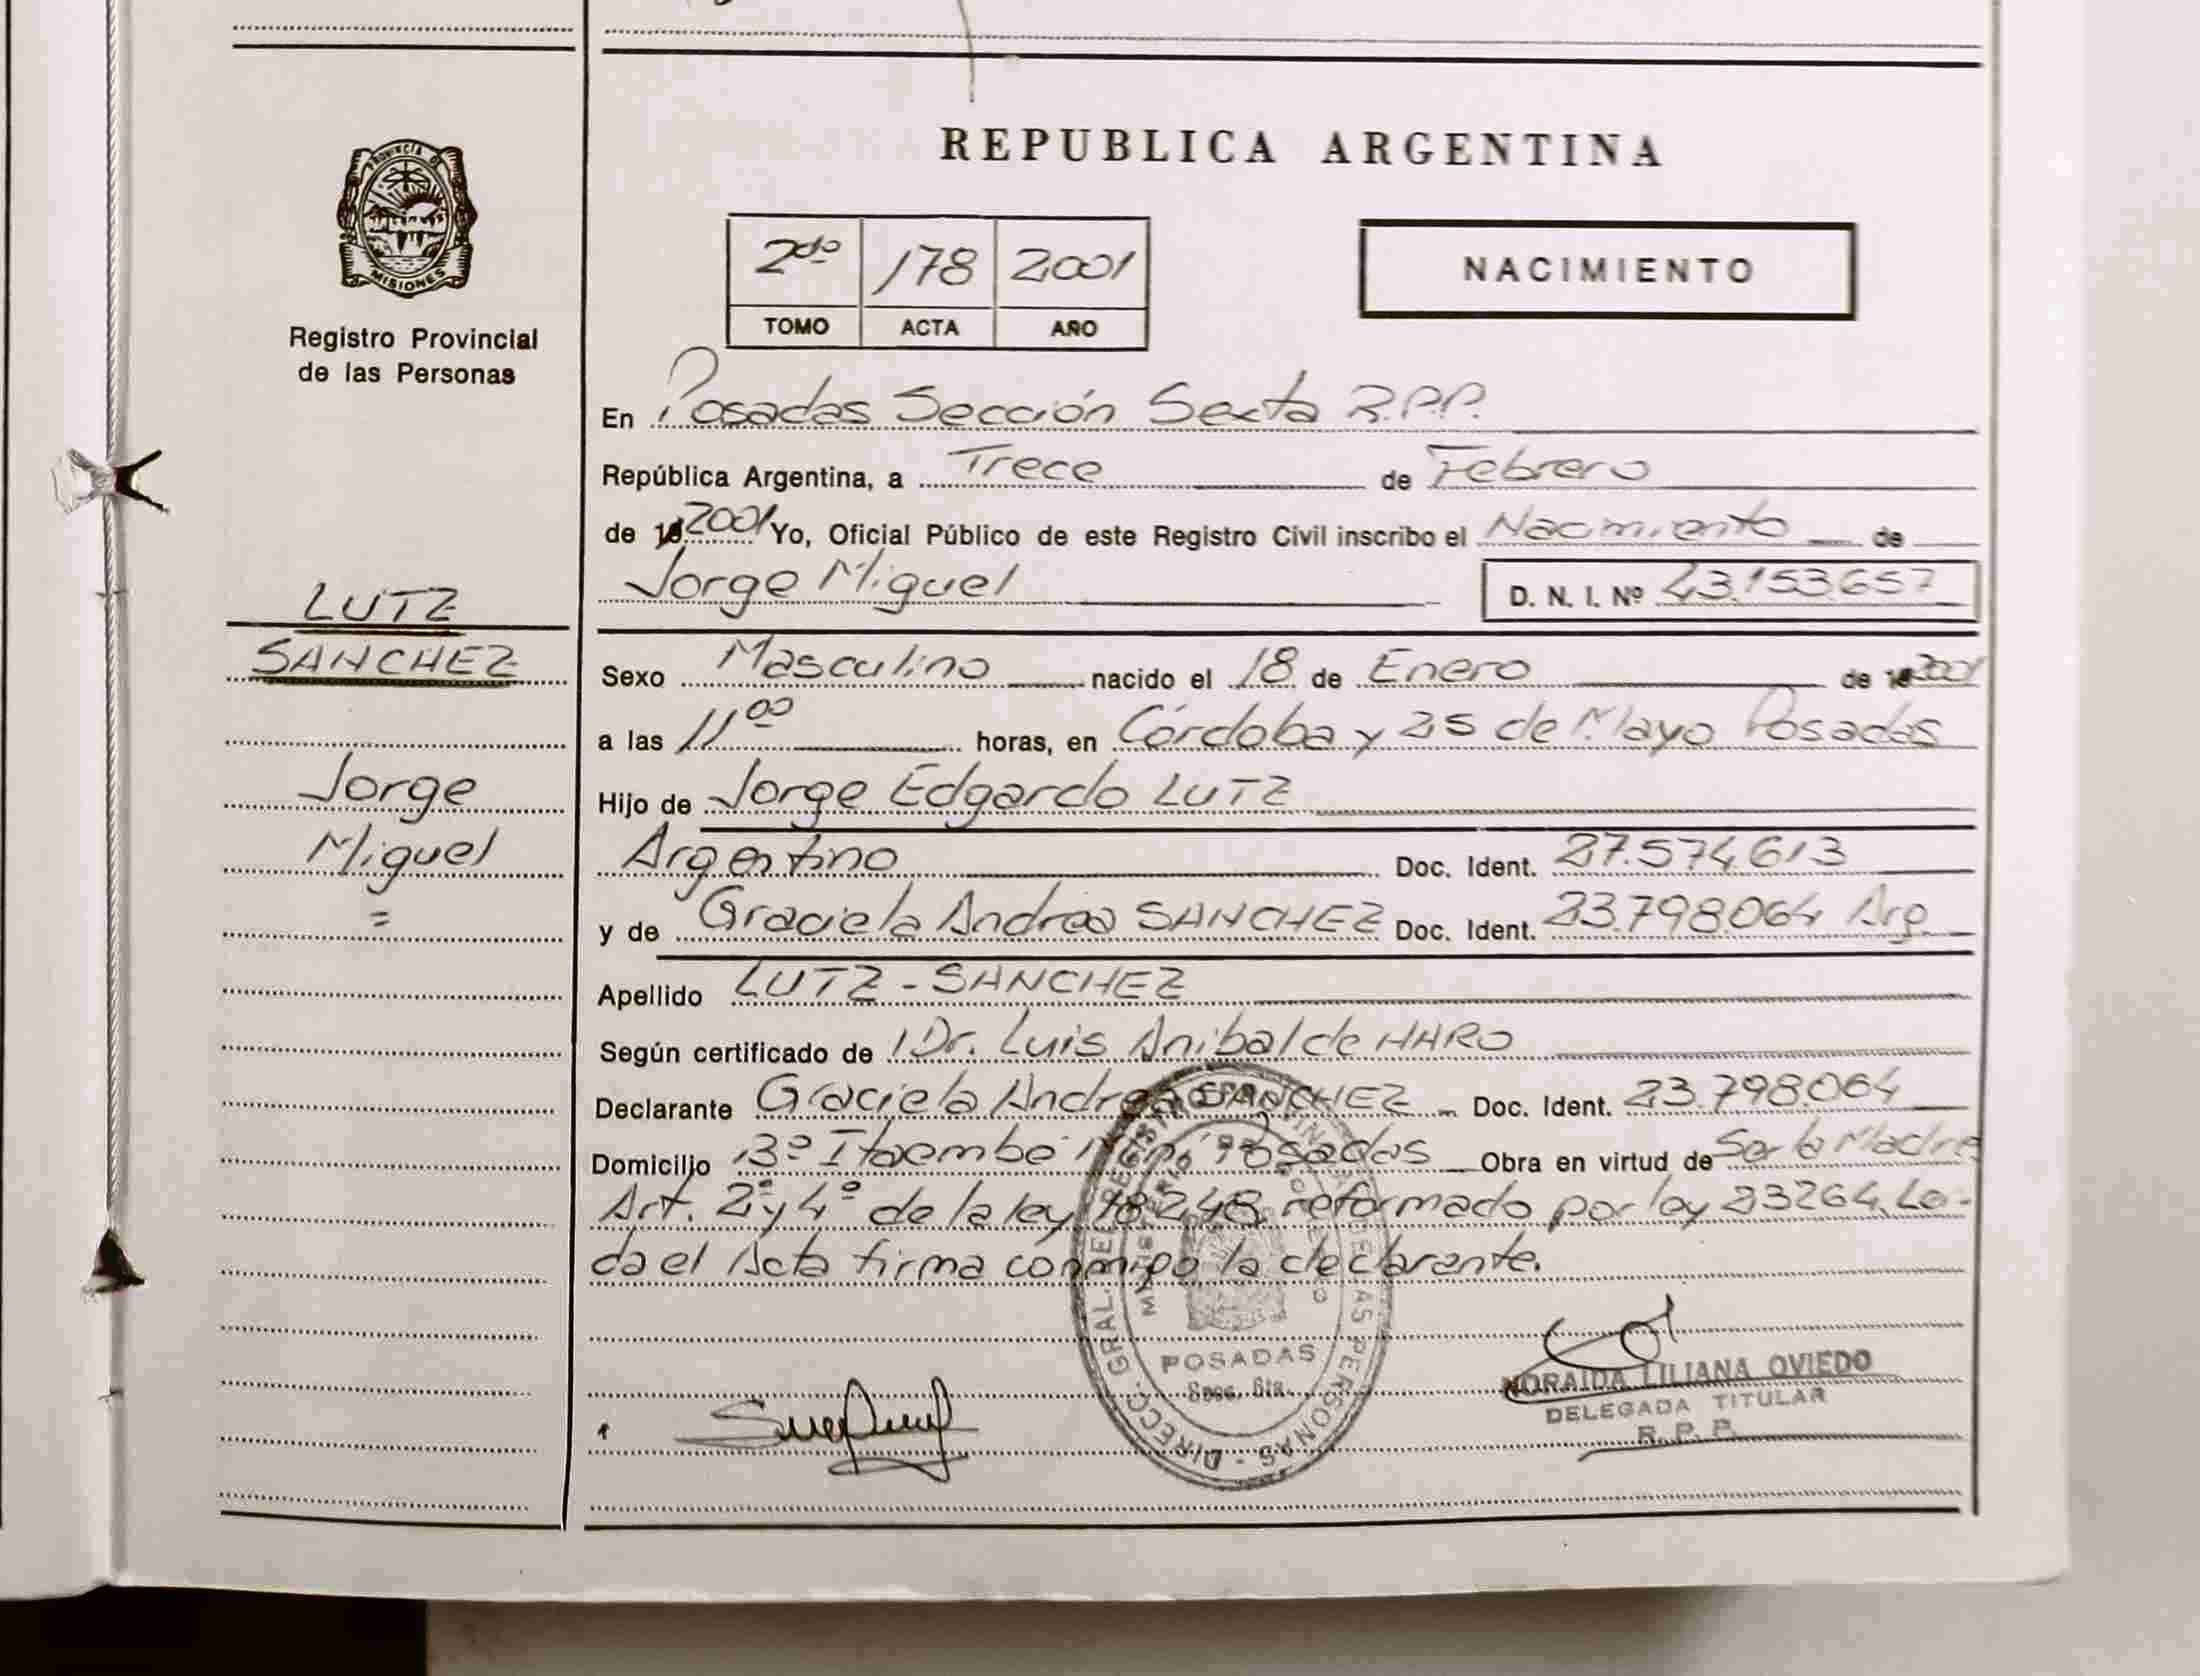 REPUBLICA ARGENTINA
PROVINCIA DE
MISIONES
Registro Provincial
de las Personas
2do 178 2001
TOMO ACTA AÑO
NACIMIENTO
En Posadas Sección Sexta R.P.P.
República Argentina, a Trece de Febrero
de 2001 Yo, Oficial Público de este Registro Civil inscribo el Nacimiento de
Jorge Miguel D. N. I. Nº 43.153.657
LUTZ
SANCHEZ
Jorge
Miguel
=
Sexo Masculino nacido el 18 de Enero de 2001
a las 11 00 horas, en Córdoba y 25 de Mayo Posadas
Hijo de Jorge Edgardo LUTZ
Argentino Doc. Ident. 27.574.613
y de Graciela Andrea SANCHEZ Doc. Ident. 23.798.064 Arg.
Apellido LUTZ - SANCHEZ
Según certificado de Dr. Luis Anibal de HARO
Declarante Graciela Andrea SANCHEZ Doc. Ident. 23.798.064
Domicilio Bº Itaembé Miní Posadas Obra en virtud de Ser la Madre
Art. 2º y 4º de la ley 18248 reformado por ley 23264. Le-
da el Acta firma conmigo la declarante.
POSADAS
Secc. 6ta.
NORAIDA LILIANA OVIEDO
DELEGADA TITULAR
R. P. P.